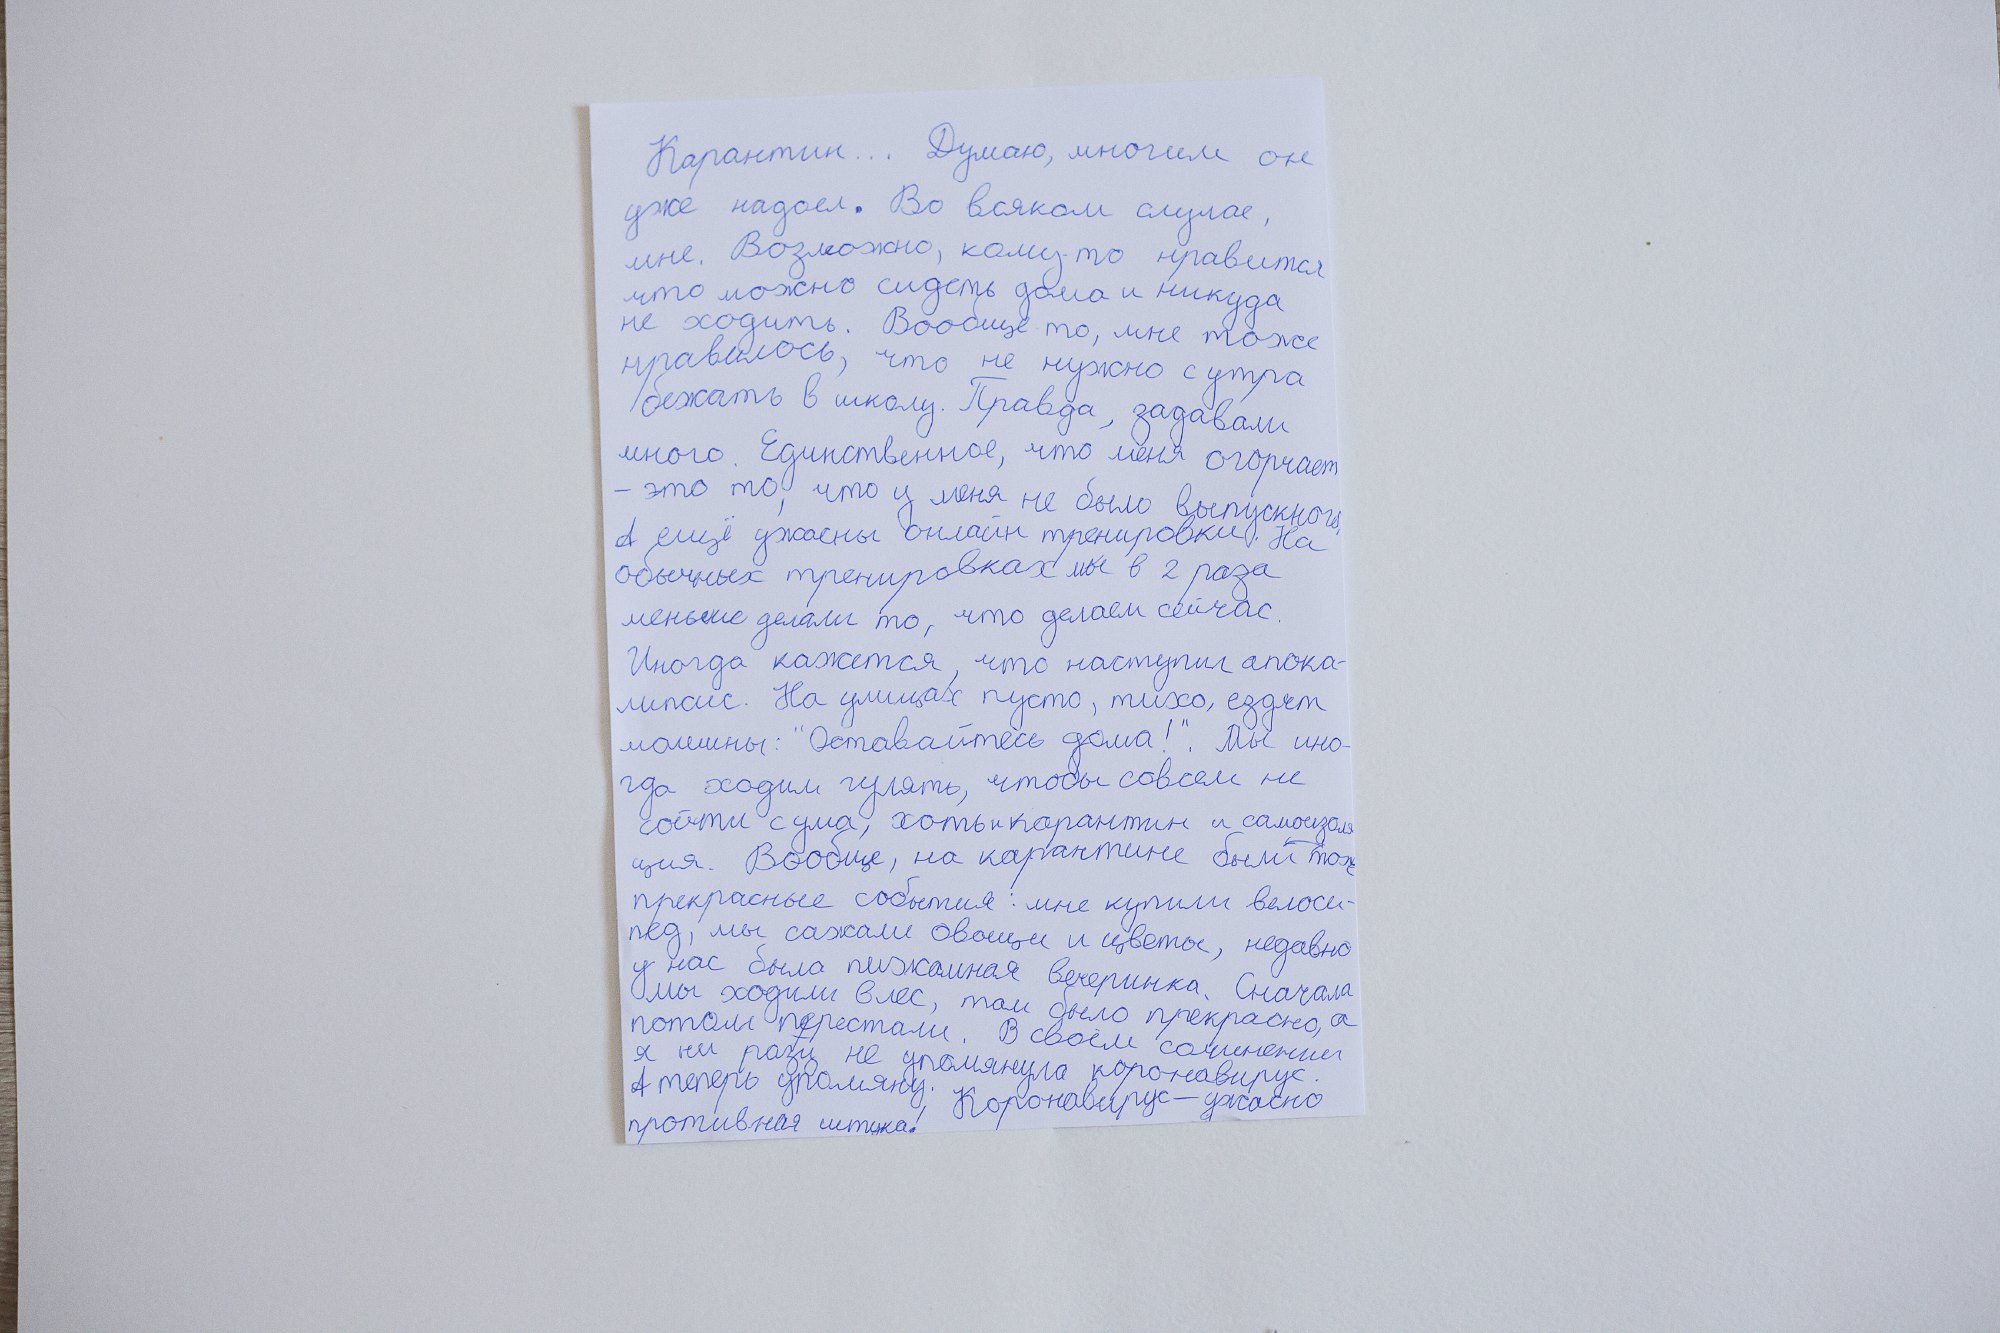 Карантин... Думаю, многим он
уже надоел. Во всяком случае,
мне. Возможно, кому-то нравится
что можно сидеть дома и никуда
не ходить. Вообще-то, мне тоже
нравилось, что не нужно с утра
бежать в школу. Правда, задавали
много. Единственное, что меня огорчает
- это то, что у меня не было выпускного.
А ещё ужасны онлайн тренировки. На
обычных тренировках мы в 2 раза
меньше делали то, что делаем сейчас.
Иногда кажется, что наступил апока-
липсис. На улицах пусто, тихо, ездят
машины: "Оставайтесь дома!". Мы ино-
гда ходим гулять, чтобы совсем не
сойти с ума, хоть и карантин и самоизоля
ция. Вообще, на карантине были тож
прекрасные события: мне купили велоси-
пед, мы сажали овощи и цветы, недавно
у нас была пижамная вечеринка. Сначала
мы ходили в лес, там было прекрасно, а
потом перестали. В своём сочинении
я ни разу не упомянула коронавирус.
А теперь упомяну. Коронавирус – ужасно
противная штука!